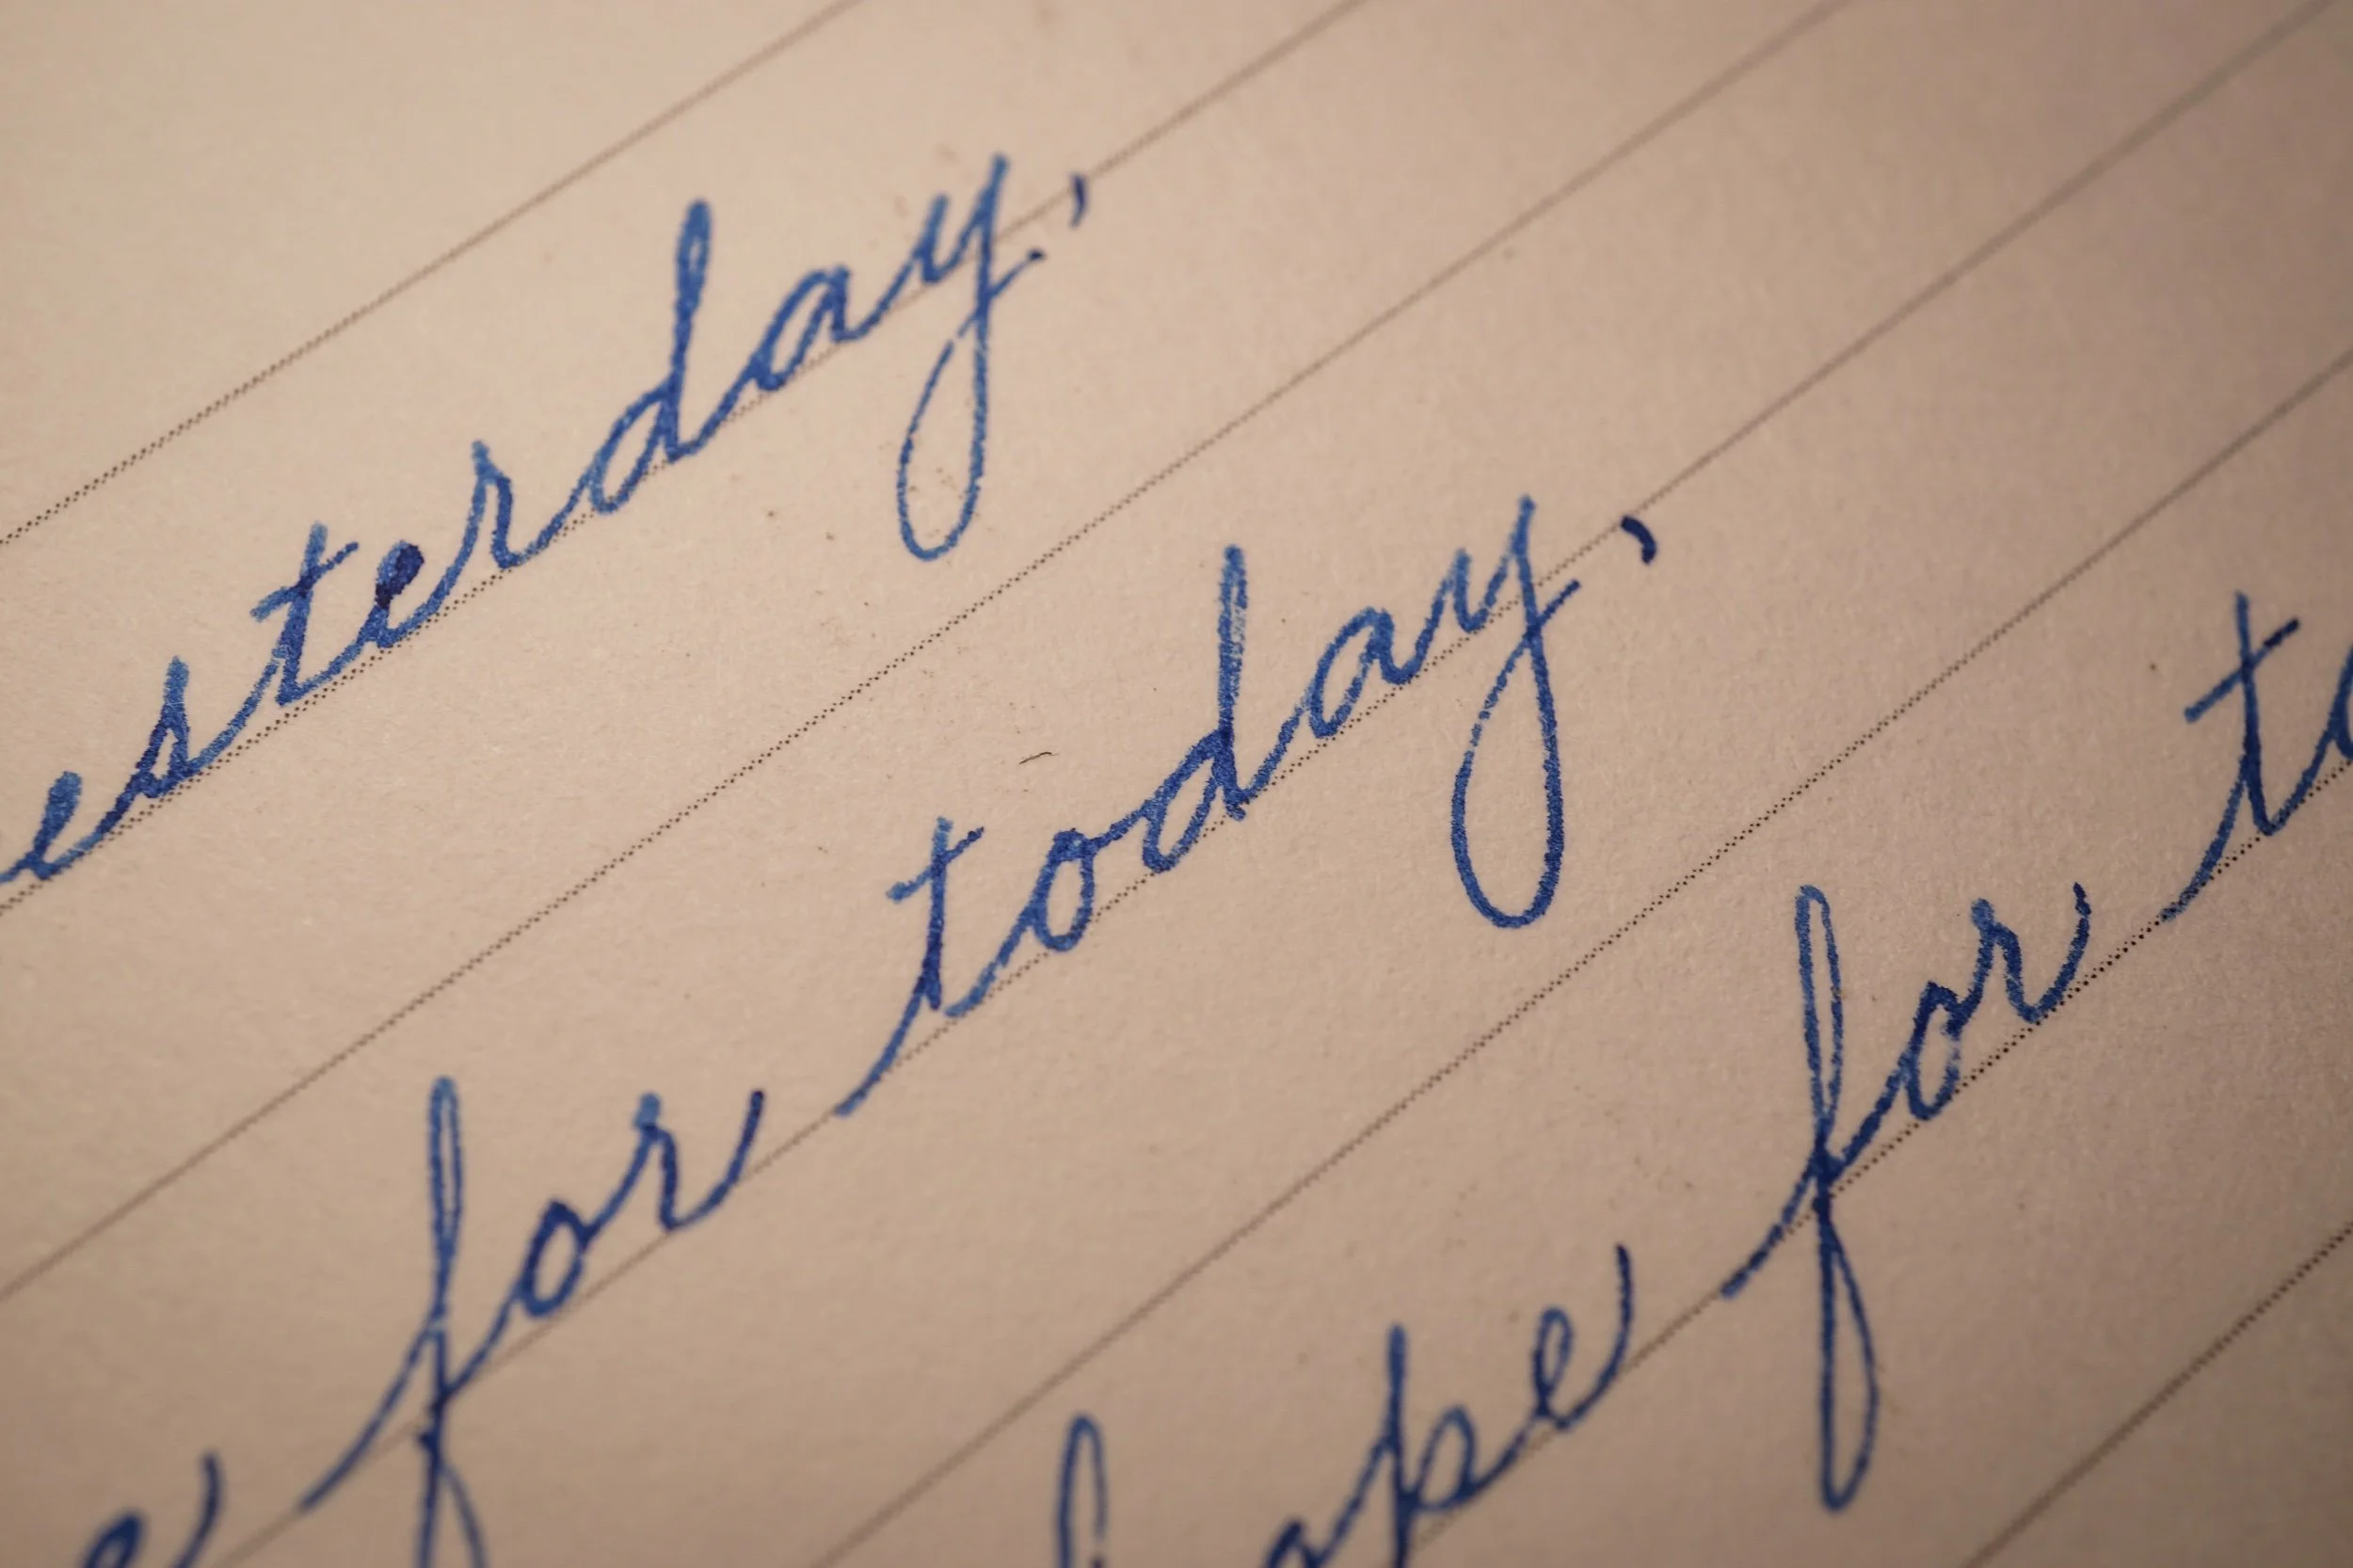 esterday,
e for today,
hope for to